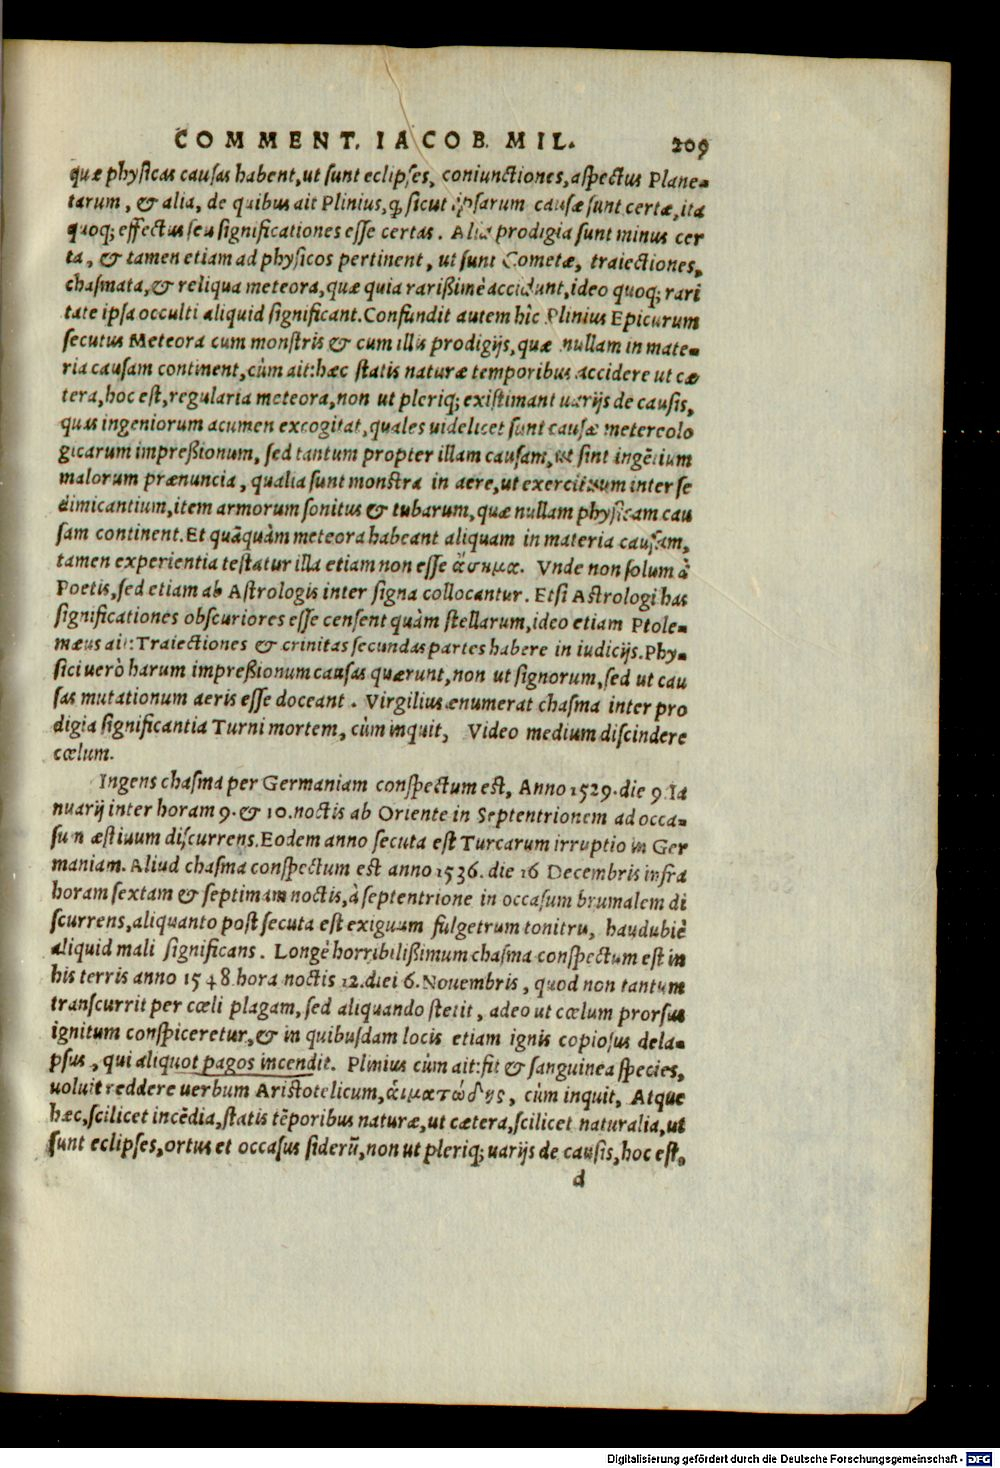 COMMENT. IACOB. MIL. 209
quæ physicas causas habent, ut sunt eclipses, coniunctiones, aspectus Plane-
tarum, & alia, de quibus ait Plinius, ꝙ sicut ipsarum causæ sunt certæ, ita
quoq; effectus seu significationes esse certas. Alia prodigia sunt minus cer
ta, & tamen etiam ad physicos pertinent, ut sunt Cometæ, traiectiones,
chasmata, & reliqua meteora, quæ quia rarißimè accidunt, ideo quoq; rari
tate ipsa occulti aliquid significant. Confundit autem hîc Plinius Epicurum
secutus Meteora cum monstris & cum illis prodigijs, quæ nullam in mate-
ria causam continent, cùm ait: hæc statis naturæ temporibus accidere ut cæ
tera, hoc est, regularia meteora, non ut pleriq; existimant uarijs de causis,
quas ingeniorum acumen excogitat, quales uidelicet sunt causæ metereolo
gicarum impreßionum, sed tantum propter illam causam, ut sint ingētium
malorum prænuncia, qualia sunt monstra in aere, ut exercituum inter se
dimicantium, item armorum sonitus & tubarum, quæ nullam physicam cau
sam continent. Et quāquàm meteora habeant aliquam in materia causam,
tamen experientia testatur illa etiam non esse ἄσημα. Vnde non solum à
Poetis, sed etiam ab Astrologis inter signa collocantur. Etsi Astrologi has
significationes obscuriores esse censent quàm stellarum, ideo etiam Ptole-
mæus ait: Traiectiones & crinitas secundas partes habere in iudicijs. Phy-
sici uerò harum impreßionum causas quærunt, non ut signorum, sed ut cau
sas mutationum aeris esse doceant. Virgilius enumerat chasma inter pro
digia significantia Turni mortem, cùm inquit, Video medium discindere
cœlum.
Ingens chasma per Germaniam conspectum est, Anno 1529. die 9. Ia
nuarij inter horam 9. & 10. noctis ab Oriente in Septentrionem ad occa-
sum æstiuum discurrens. Eodem anno secuta est Turcarum irruptio in Ger
maniam. Aliud chasma conspectum est anno 1536. die 16 Decembris infra
horam sextam & septimam noctis, à septentrione in occasum brumalem di
scurrens, aliquanto post secuta est exiguum fulgetrum tonitru, haudubiè
aliquid mali significans. Longè horribilißimum chasma conspectum est in
his terris anno 1548 hora noctis 12. diei 6. Nouembris, quod non tantum
transcurrit per cœli plagam, sed aliquando stetit, adeo ut cœlum prorsus
ignitum conspiceretur, & in quibusdam locis etiam ignis copiosus dela-
psus, qui aliquot pagos incendit. Plinius cùm ait: fit & sanguinea species,
uoluit reddere uerbum Aristotelicum, ἁιματώδης, cùm inquit, Atque
hæc, scilicet incēdia, statis tēporibus naturæ, ut cætera, scilicet naturalia, ut
sunt eclipses, ortus et occasus siderū, non ut pleriq; uarijs de causis, hoc est,
d
Digitalisierung gefördert durch die Deutsche Forschungsgemeinschaft - DFG